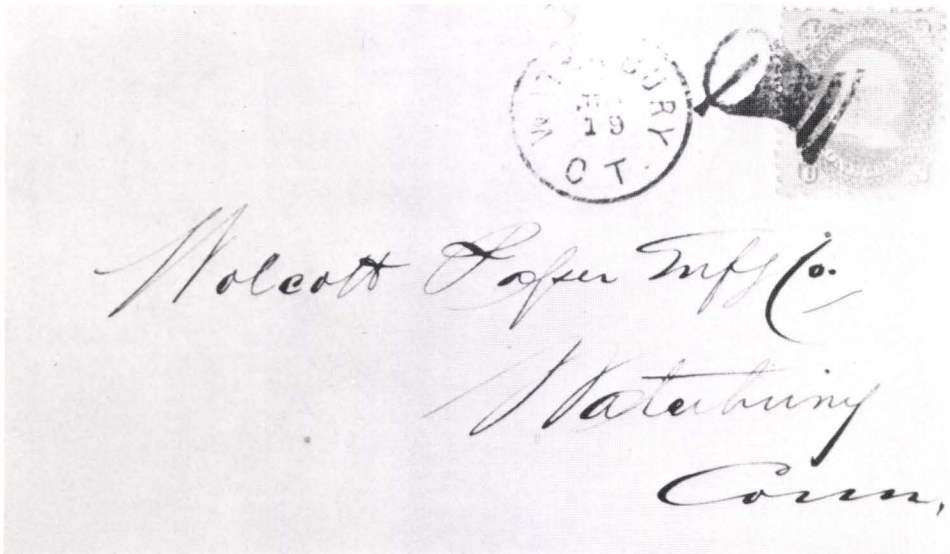 WATERBURY
19
CT.
Wolcott Paper Mfg Co.
Waterbury
Conn.